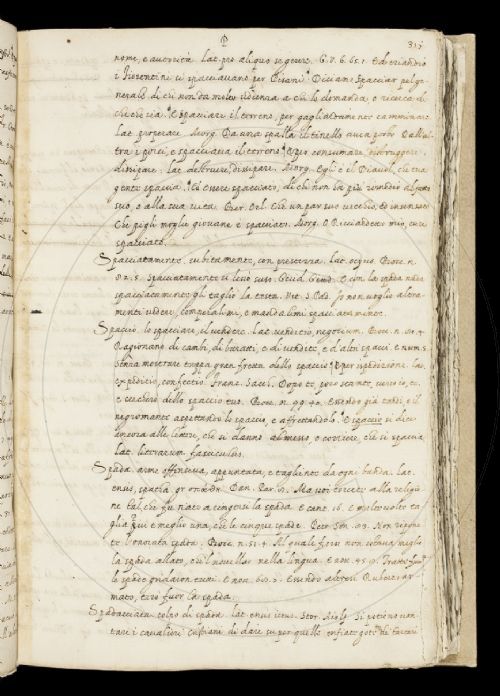 P
nome, e autorità. Lat. pro aliquo se gerere. G. V. 6. 65. 1. E
i Fiorentini si spacciavano per Pisani. Diciamo Spacciar pel ge
nerale di chi non da molta udienza a chi lo domanda, o ricerca di
che che sia. E spacciare il terreno, per gagliardamente camminare
Lat. properare. Morg. Da una spalla il tinello avea posto E dall'al
tra i porci, e spacciava il terreno. E per consumare, distruggere,
dissipare. Lat. destruere, dissipare. Morg. Egli è il Diavol, che tua
gente spaccia. Ed essere spacciato, di chi non ha più rimedio al
suo, o alla sua vita. Ber. Orl. Che un par suo vecchio, ed
Che pigli moglie giovane è spacciato. Morg. O Ricciardetto mio, tu se'
spacciato.
Spacciatamente, subitamente, con prestezza. Lat. ocyus. Bocc. n.
82. 5. Spacciatamente si levò suso. E con la spada nuda
spacciatamente gli tagliò la testa. Vit. S. Pad. Io non voglio altra
menti vedere, comperalimi, e mandalimi spacciatamente.
Spaccio, lo spacciare, il vendere. Lat. venditio, negotium. Bocc. n. 80. 4.
Ragionano di cambi, di baratti, e di vendite, e d'altri spacci. E num. 5
Senza mostrare troppa gran fretta dello spaccio. E per ispedizione. Lat.
expeditio, confectio. Franc. Sacch. Dopo te, poco stante,
e cercherò dello spaccio tuo. Bocc. n. 99. 40. Essendo già tardi, e il
negromante aspettando lo spaccio, e affrettandolo. E spaccio si dice
ancora alle lettere, che si danno al messo, o corriere, che si spaccia,
Lat. literarum fasciculus.
Spada. arme offensiva, appuntata, e tagliente da ogni banda. Lat.
ensis, spatha. gr. σπάθη. Dan. Par. 8. Ma voi torcete alla religio
ne tal, che fu nato a cingersi la spada. E cant. 16. E molte volte ta
glia più e meglio una, che le cinque spade. Petr. Son. 83. Non ripone
te l'onorata spada. Bocc. n. 51. 4. Al quale forse non istava meglio
la spada allato, che 'l novellar nella lingua. E nov. 45. 9. Tratte fuor
le spade gridaron tutti. E nov. 60. 2. Essendo altresì Ruberto ar
mato, tirò fuor la spada.
Spadacciata, colpo di spada. Lat. ensis ictus. Stor. Aiolf. Si potieno con
tare i cavalieri cristiani di dare su per quello